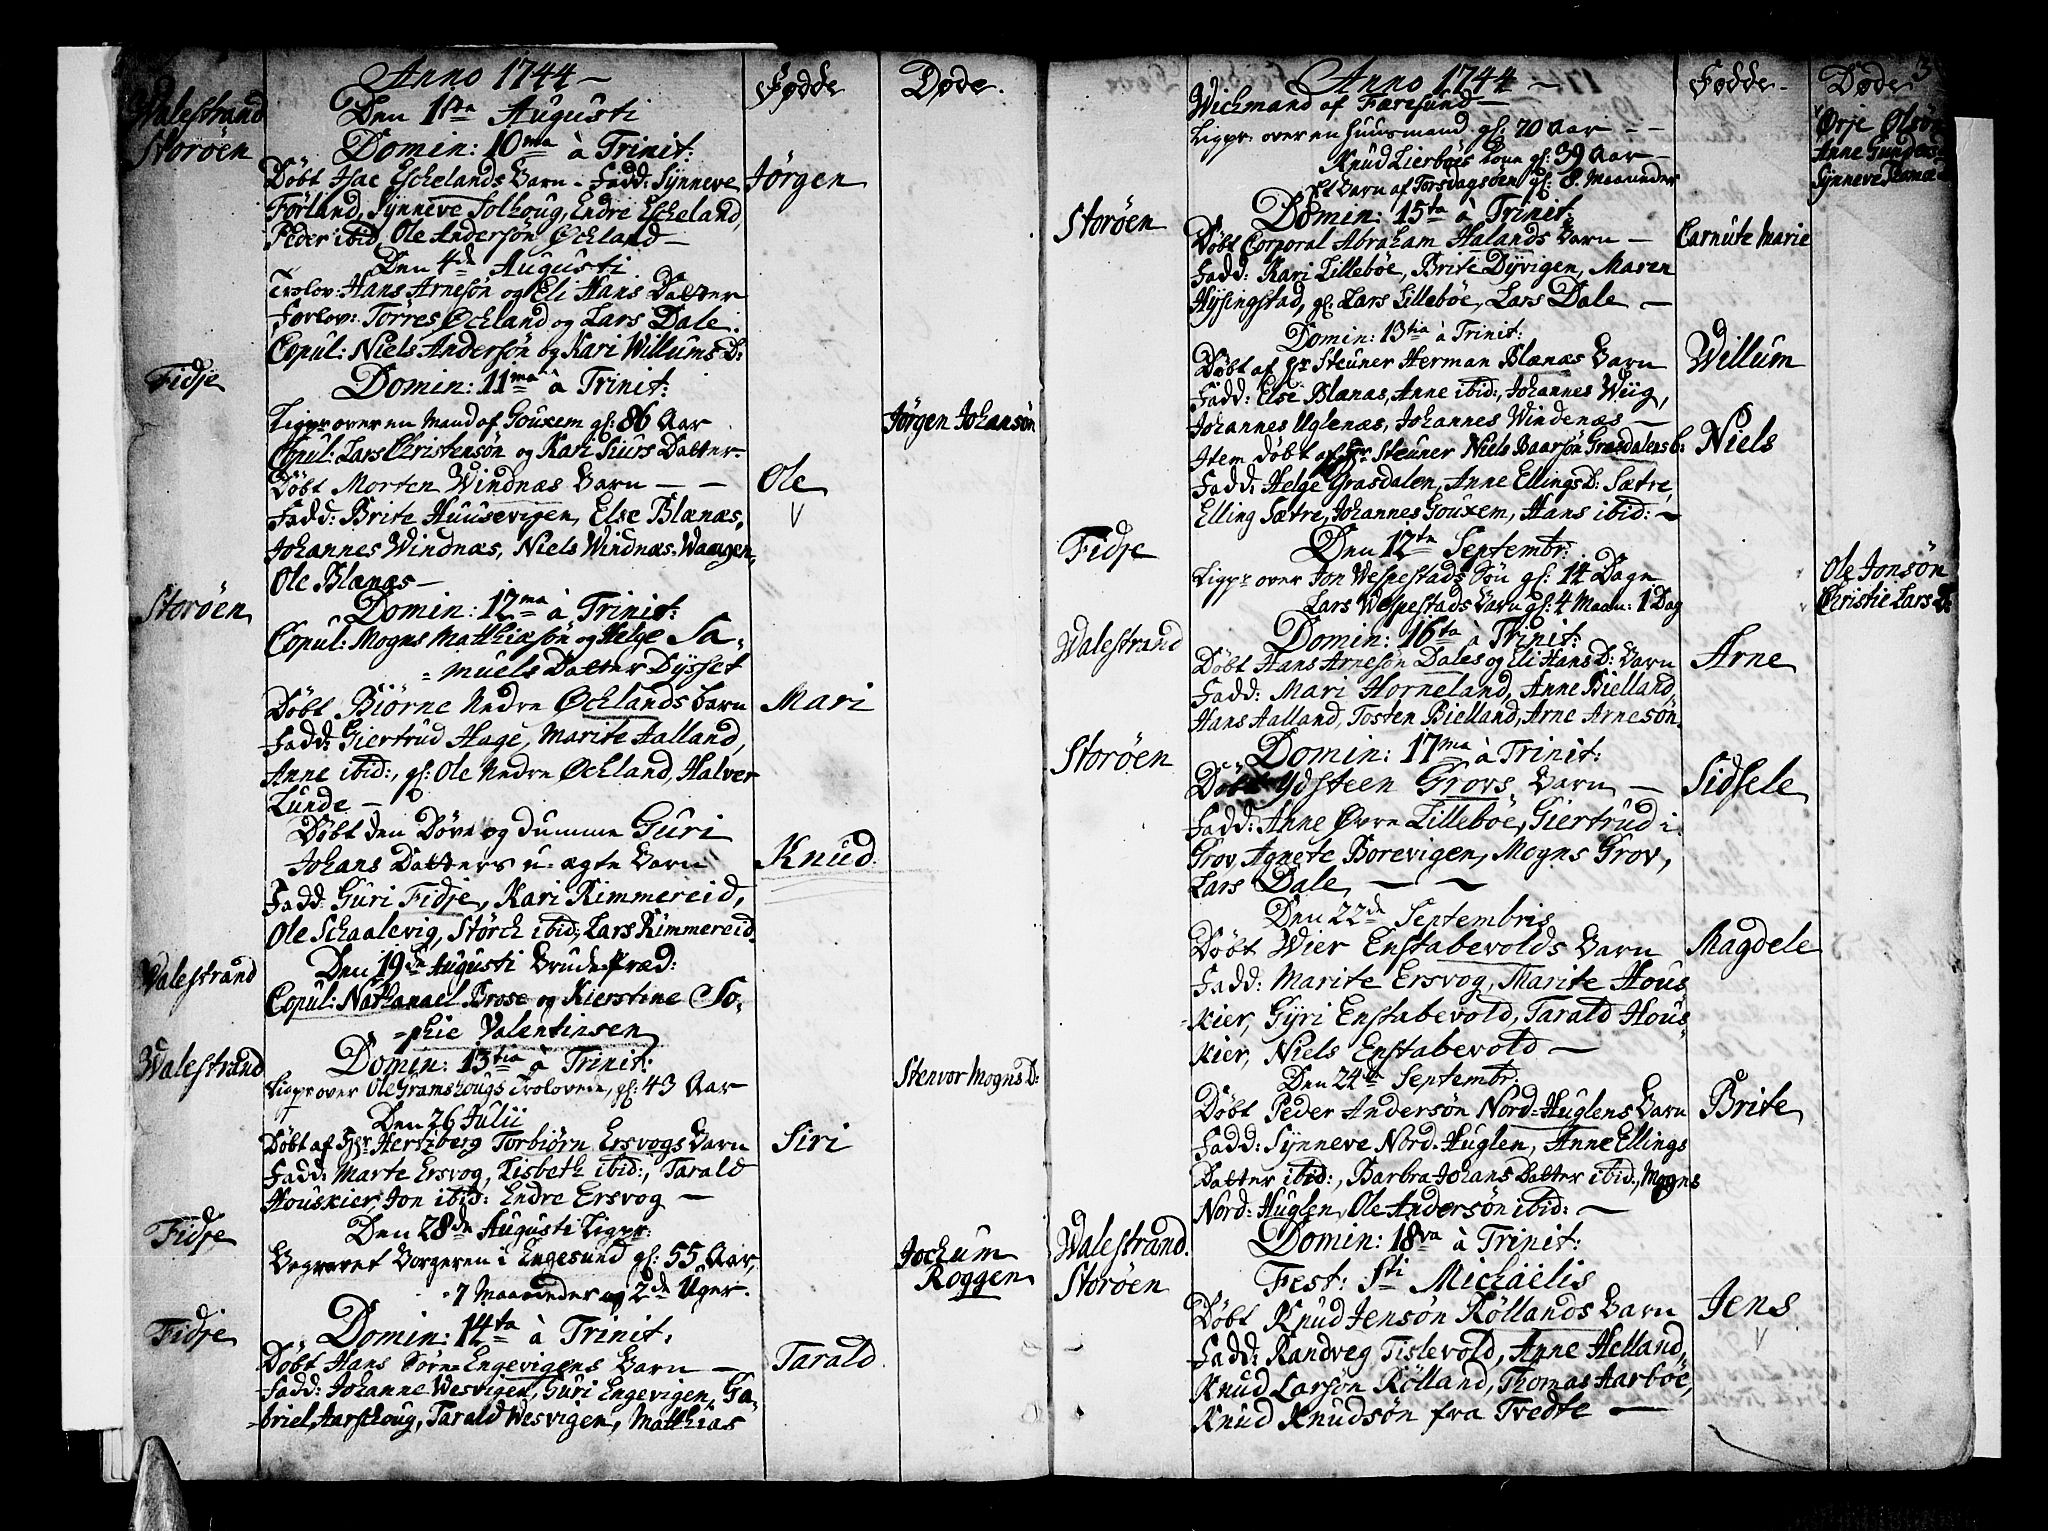 Anno 1744 Fødde Døde.
Walestrand Den 1ste Augusti
Storøen Domin: 10ma à Trinit:
Døbt Isac Eschelands Barn - Fadd: Synneve Jørgen
Førland, Synneve Solhoug, Endre Escheland,
Peder ibid, Ole Andersøn Øchland
Den 4de Augusti
Trolov: Hans Arnesøn og Eli Hans Datter
Forlov: Torres Øchland og Lars Dale.
Copul: Niels Andersøn og Kari Willums D:
Fidje Domin: 11ma à Trinit:
Ligpr over en Mand af Gouxem gl: 86 Aar Jørgen Johansøn
Copul: Lars Christensøn og Kari Siurs Datter
Døbt Morten Windnæs Barn Ole
Fadd: Brite Huusevigen, Else Blænæs,
Johannes Windnæs, Niels Windnæs-Waagen,
Ole Blænæs
Storøen Domin: 12ma à Trinit:
Copul: Mogns Matthiæsøn og Helge Sa-
muels Datter Dysset
Døbt Biørne Nedre Øchlands Barn Mari
Fadd: Giertrud Hage, Marite Aalland,
Anne ibid:, gl: Ole Nedre Øchland, Halver
Lunde
Døbt den Døve og dumme Guri
Johans Datters u-ægte Barn Knud
Fadd: Guri Fidje, Kari Rimmereid,
Ole Schaalevig, Størch ibid:, Lars Rimmereid
Walestrand Den 19de Augusti Brude-Præd:
Copul: Nathanael Brose og Kierstine So-
phie Valentinsen
Walestrand Domin: 13tia à Trinit:
Ligpr over Ole Gramshougs Trolovede, gl: 43 Aar Stenvor Mogns D:
Den 26 Julii
Døbt af Hr Hertzberg Torbiørn Ersvogs Barn Siri
Fadd: Marte Ersvog, Lisbeth ibid:, Tarald
Houskier, Jon ibid: Endre Ersvog
Fidje Den 28de Augusti Ligpr:
Begravet Borgeren i Engesund gl: 55 Aar, Jochum
7 Maaneder og 2de Uger. Roggen
Fidje Domin: 14ta à Trinit:
Døbt Hans Søre-Engevigens Barn Tarald
Fadd: Johanne Wesvigen, Guri Engevigen, Ga-
briel Aarskoug, Tarald Wesvigen, Matthias
Anno 1744 Fødde Døde 3
Wichmand af Færesund
Ligpr over en Huusmand gl: 70 Aar Ørje Olsøn
Knud Lierbøes Kone gl: 39 Aar Anne Gunders
et Barn af Torsdagsøen gl: 8 Maaneder Synneve
Storøen Domin: 15ta à Trinit:
Døbt Corporal Abraham Halands Barn Carnute Marie
Fadd: Kari Lillebøe, Brite Dyvigen, Maren
Hysingstad, gl: Lars Lillebøe, Lars Dale
Domin: 13tia à Trinit:
Døbt af Hr Steuner Herman Blænæs Barn Willum
Fadd: Else Blænas, Anne ibid:, Johannes Wiig,
Johannes Uglenæs, Johannes Windenæs
Item døbt af Hr Steuner Niels Baarsøn Grasdalens b: Niels
Fadd: Helge Grasdalen, Anne Ellings D: Sætre,
Elling Sætre, Johannes Gouxem, Hans ibid:
Fidje Den 12te Septembr:
Ligpr over Jon Wespestads Søn gl: 14 Dage Ole Jonsøn
Lars Wespestads Barn gl: 4 Maan: 1 Dag Christie Lars D:
Walestrand Domin: 16ta à Trinit:
Døbt Hans Arnesøn Dales og Eli Hans D: Barn Arne
Fadd: Mari Horneland, Anne Bielland,
Hans Aalland, Tosten Bielland, Arne Arnesøn
Storøen Domin: 17ma à Trinit:
Døbt Ydsteen Grovs Barn Sidsele
Fadd: Anne Øvre Lillebøe, Giertrud i
Grov, Agnete Borevigen, Mogns Grov,
Lars Dale
Den 22de Septembris
Døbt Wier Enstabevolds Barn Magdele
Fadd: Marite Ersvog, Marite Hous
kier, Gyri Enstabevold, Tarald Hous
kier, Niels Enstabevold
Den 24de Septembr:
Døbt Peder Andersøn Nord-Huglens Barn Brite
Fadd: Synneve Nord-Huglen, Anne Ellings
Datter ibid:, Barbra Johans Datter ibid:, Mogns
Nord-Huglen, Ole Andersøn ibid:
Walestrand. Domin: 18va à Trinit:
Storøen Fest: Sti Michaelis
Døbt Knud Jensøn Røllands Barn Jens
Fadd: Randveg Tislevold, Anne Helland,
Knud Larsøn Rølland, Thomas Aarbøe,
Knud Knudsøn fra Tvedte